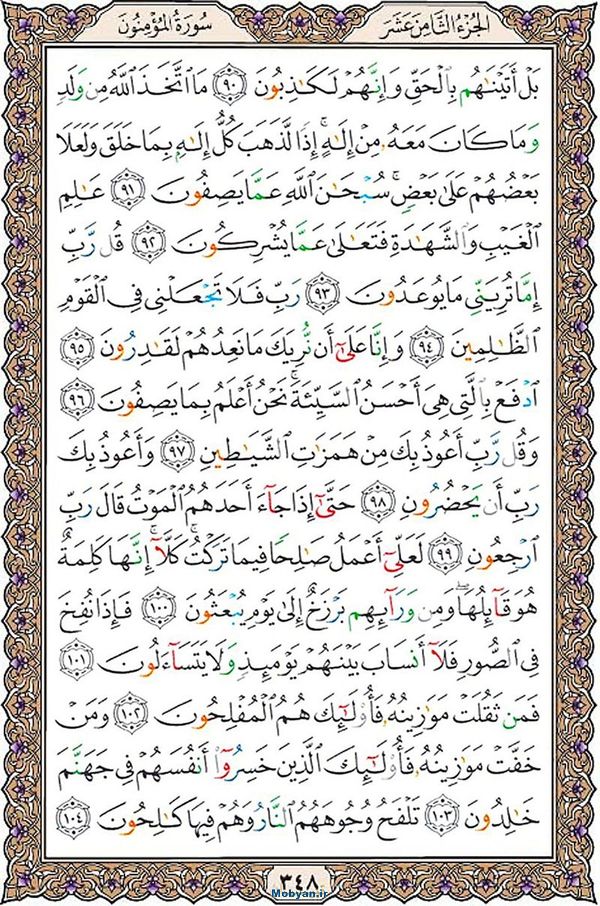 سُورَةُ المُؤْمِنُونَ
الجُزْءُ الثَّامِنَ عَشَرَ
بَلْ أَتَيْنَـٰهُم بِٱلْحَقِّ وَإِنَّهُمْ لَكَـٰذِبُونَ ٩٠ مَا ٱتَّخَذَ ٱللَّهُ مِن وَلَدٍ
وَمَا كَانَ مَعَهُۥ مِنْ إِلَـٰهٍ ۚ إِذًا لَّذَهَبَ كُلُّ إِلَـٰهٍۭ بِمَا خَلَقَ وَلَعَلَا
بَعْضُهُمْ عَلَىٰ بَعْضٍ ۚ سُبْحَـٰنَ ٱللَّهِ عَمَّا يَصِفُونَ ٩١ عَـٰلِمِ
ٱلْغَيْبِ وَٱلشَّهَـٰدَةِ فَتَعَـٰلَىٰ عَمَّا يُشْرِكُونَ ٩٢ قُل رَّبِّ
إِمَّا تُرِيَنِّى مَا يُوعَدُونَ ٩٣ رَبِّ فَلَا تَجْعَلْنِى فِى ٱلْقَوْمِ
ٱلظَّـٰلِمِينَ ٩٤ وَإِنَّا عَلَىٰٓ أَن نُّرِيَكَ مَا نَعِدُهُمْ لَقَـٰدِرُونَ ٩٥
ٱدْفَعْ بِٱلَّتِى هِىَ أَحْسَنُ ٱلسَّيِّئَةَ ۚ نَحْنُ أَعْلَمُ بِمَا يَصِفُونَ ٩٦
وَقُل رَّبِّ أَعُوذُ بِكَ مِنْ هَمَزَٰتِ ٱلشَّيَـٰطِينِ ٩٧ وَأَعُوذُ بِكَ
رَبِّ أَن يَحْضُرُونِ ٩٨ حَتَّىٰٓ إِذَا جَآءَ أَحَدَهُمُ ٱلْمَوْتُ قَالَ رَبِّ
ٱرْجِعُونِ ٩٩ لَعَلِّىٓ أَعْمَلُ صَـٰلِحًا فِيمَا تَرَكْتُ ۚ كَلَّآ ۚ إِنَّهَا كَلِمَةٌ
هُوَ قَآئِلُهَا ۖ وَمِن وَرَآئِهِم بَرْزَخٌ إِلَىٰ يَوْمِ يُبْعَثُونَ ١٠٠ فَإِذَا نُفِخَ
فِى ٱلصُّورِ فَلَآ أَنسَابَ بَيْنَهُمْ يَوْمَئِذٍ وَلَا يَتَسَآءَلُونَ ١٠١
فَمَن ثَقُلَتْ مَوَٰزِينُهُۥ فَأُو۟لَـٰٓئِكَ هُمُ ٱلْمُفْلِحُونَ ١٠٢ وَمَنْ
خَفَّتْ مَوَٰزِينُهُۥ فَأُو۟لَـٰٓئِكَ ٱلَّذِينَ خَسِرُوٓا۟ أَنفُسَهُمْ فِى جَهَنَّمَ
خَـٰلِدُونَ ١٠٣ تَلْفَحُ وُجُوهَهُمُ ٱلنَّارُ وَهُمْ فِيهَا كَـٰلِحُونَ ١٠٤
٣٤٨
Mobyan.ir